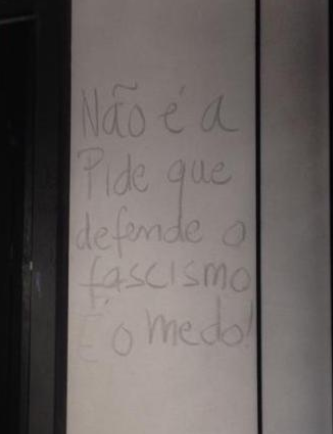 Não é a
Pide que
defende o
fascismo
É o medo!